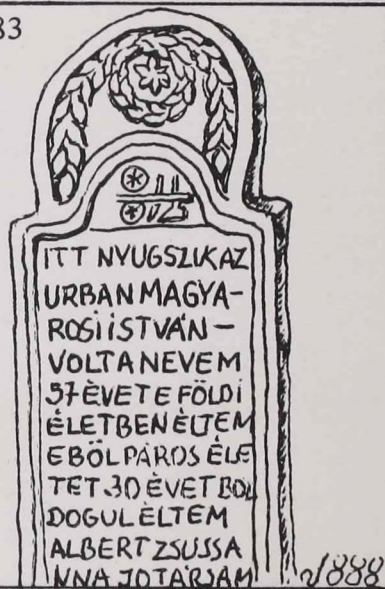 83
ITT NYUGSZIK AZ
URBAN MAGYA-
ROSI ISTVÁN -
VOLT A NEVEM
57 ÉVET E FÖLDI
ÉLETBEN ÉLTEM
EBÖL PÁROS ÉLE
TET 30 ÉVET BOL
DOGUL ÉLTEM
ALBERT ZSUSSA
NNA JO TÁRSAM
1888